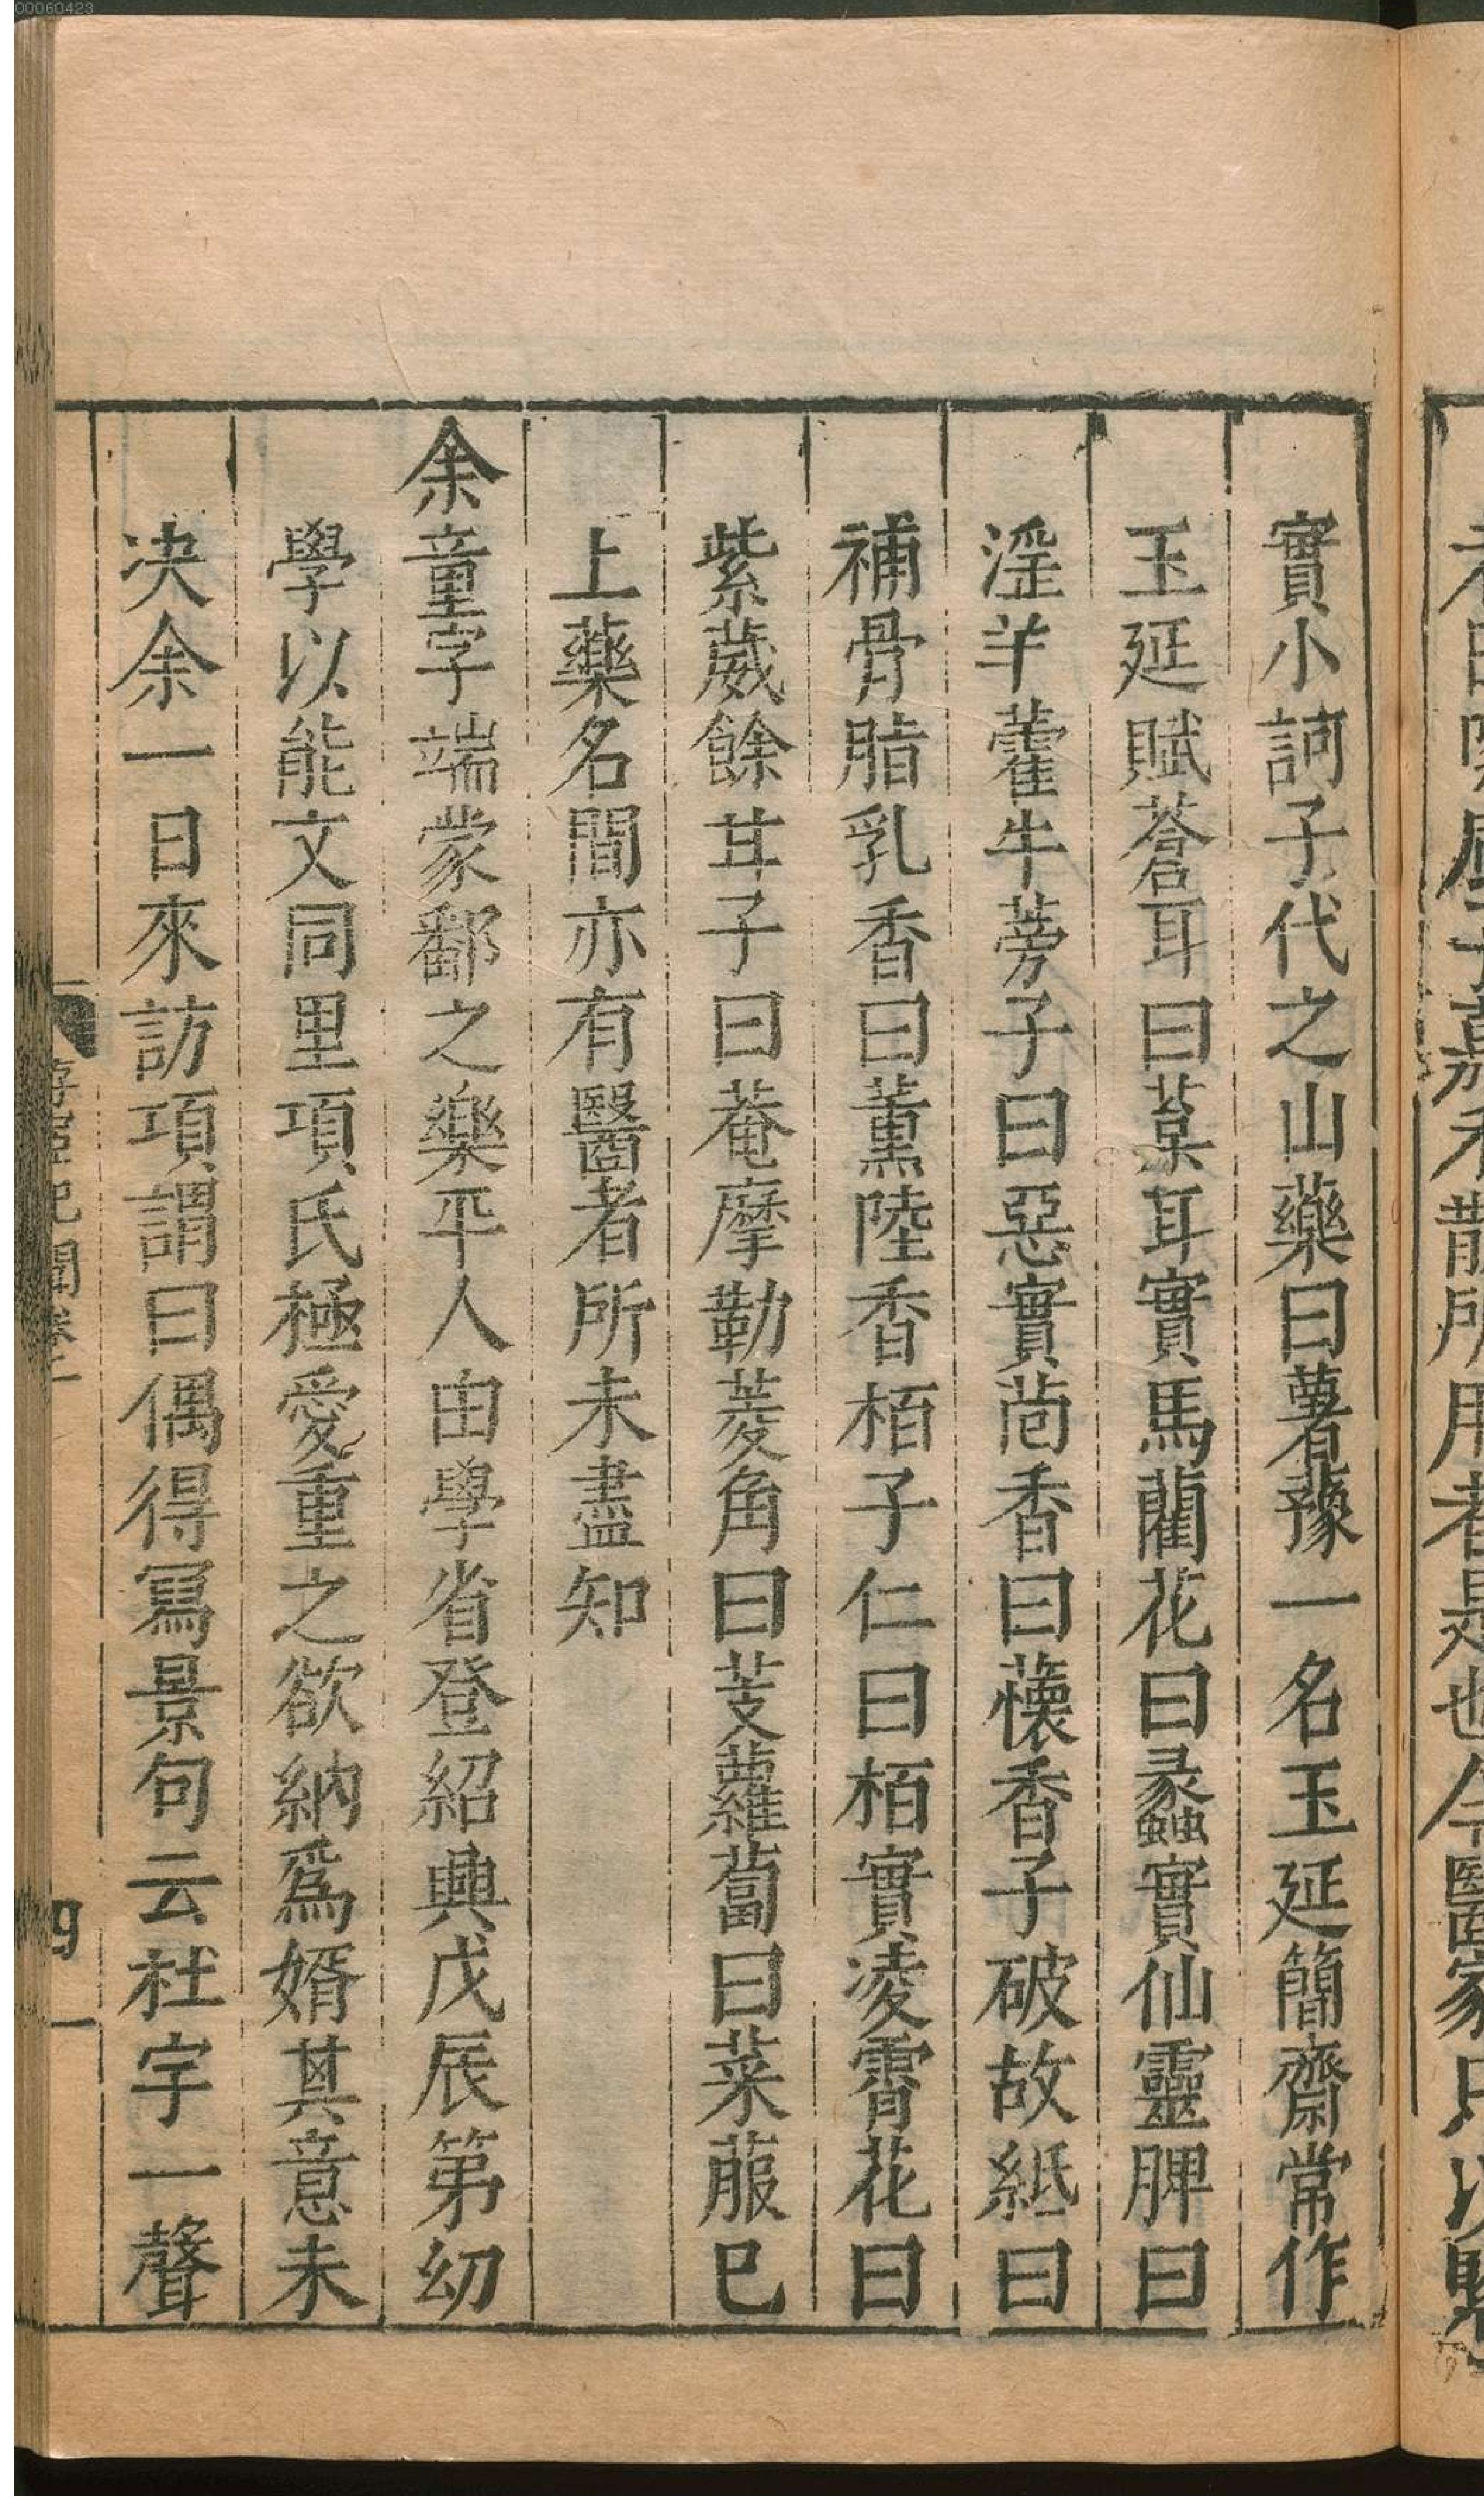 實小訶子代之山藥曰薯蕷一名玉延簡齋常作
玉延賦蒼耳曰葈耳實馬藺花曰蠡實仙靈脾曰
淫羊藿牛蒡子曰惡實茴香曰蘹香子破故紙曰
補骨脂乳香曰薰陸香栢子仁曰栢實凌霄花曰
紫葳餘甘子曰菴摩勒菱角曰芰蘿蔔曰菜菔已
上藥名間亦有醫者所未盡知
余童字端蒙鄱之樂平人由學省登紹興戊辰第幼
學以能文同里項氏極愛重之欲納爲婿其意未
决余一日來訪項謂曰偶得寫景句云社宇一聲
四
00060423